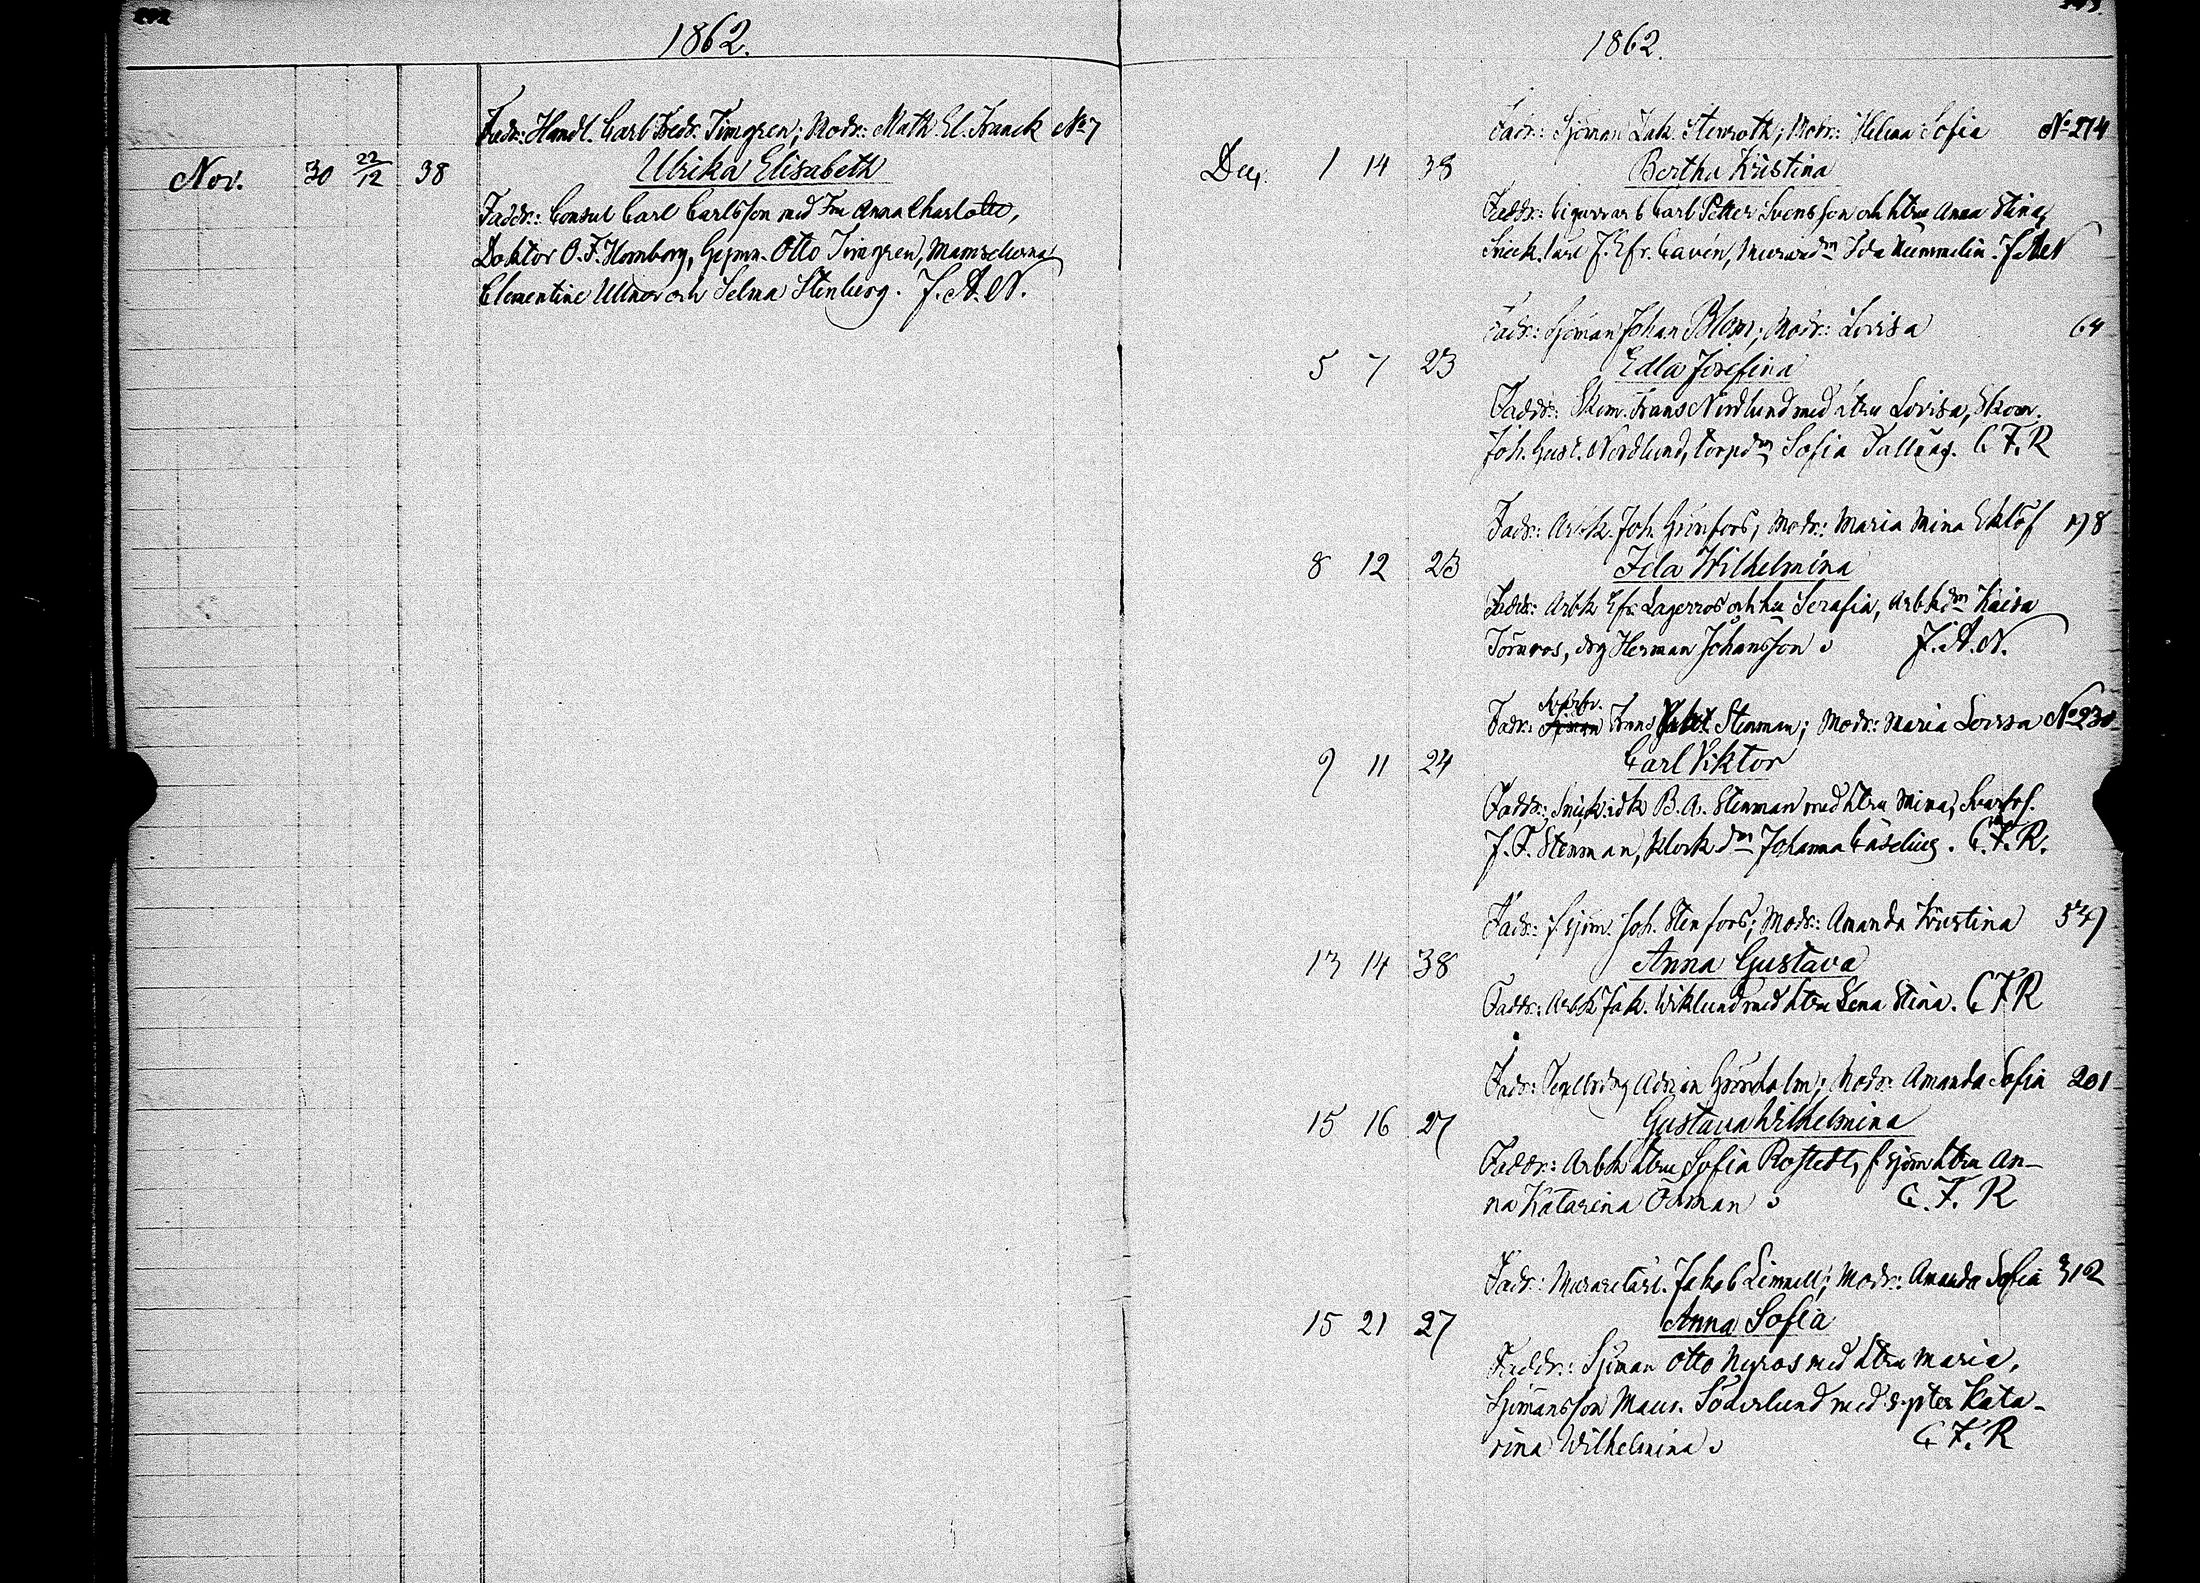 1862.
Fadr: Handl. Carl Fredr. Timgren; Modr: Math. El. Franck No 7
Nov. 30 22/12 38 Ulrika Elisabeth
Faddr: Consul Carl Carlsson med Fru Anna Charlotte,
Doktor O. F. Homborg, Gymn. Otto Timgren, Mamsellerna
Clementine Ullner och Selma Stenberg. J. A. N.
1862.
Fadr: Sjöman Isak Stenroth; Modr: Helena Sofia No 274
Dec. 1 14 38 Bertha Kristina
Faddr: Carl Petter Svensson och htru Anna Stina,
Snick. lärl J. Efr. Cavén, murared:n Ida Nummelin. J. A. N
Fadr: Sjöman Johan Blom; Modr: Lovisa 64
5 7 23 Edla Josefina
Faddr: Skom. Frans Nordlund med htru Lovisa, Skom.
Joh. Gust. Nordlund, torpd:n Sofia Tallqv. C. F. R
Fadr: Arbk. Joh. Grönfors; Modr: Maria Mina Eklöf 198
8 12 23 Ida Wilhelmina
Faddr: Arbk Efr. Lagerros och hu Serafia, Arbkd:n Kaisa
Törnros, drg Herman Johansson J. A. N.
Fadr: Frans Stenman; Modr: Maria Lovisa No 230
9 11 24 Carl Viktor
Faddr: Snick.idk B. A. Stenman med htru Mina, Svarfvf.
J. F. Stenman, Klockd:n Johanna Caselius. C. F. R.
Fadr: f sjöm. Joh. Stenfors; Modr: Amanda Kristina 549
13 14 38 Anna Gustava
Faddr: Arbk Jak. Wiklund med htru Lena Stina. C F R
Fadr: Adrian Grönholm; Modr: Amanda Sofia 201
15 16 27 Gustava Wilhelmina
Faddr: Arbk htru Sofia Rostedt, f sjöm htru An-
na Katarina Öhman C. F. R
Fadr: Murarelärl. Jakob Limnell; Modr: Amanda Sofia 312
15 21 27 Anna Sofia
Faddr: Sjöman Otto Nyros med htru Maria,
Sjömansson Maur. Söderlund med syster Kata-
rina Wilhelmina C F. R